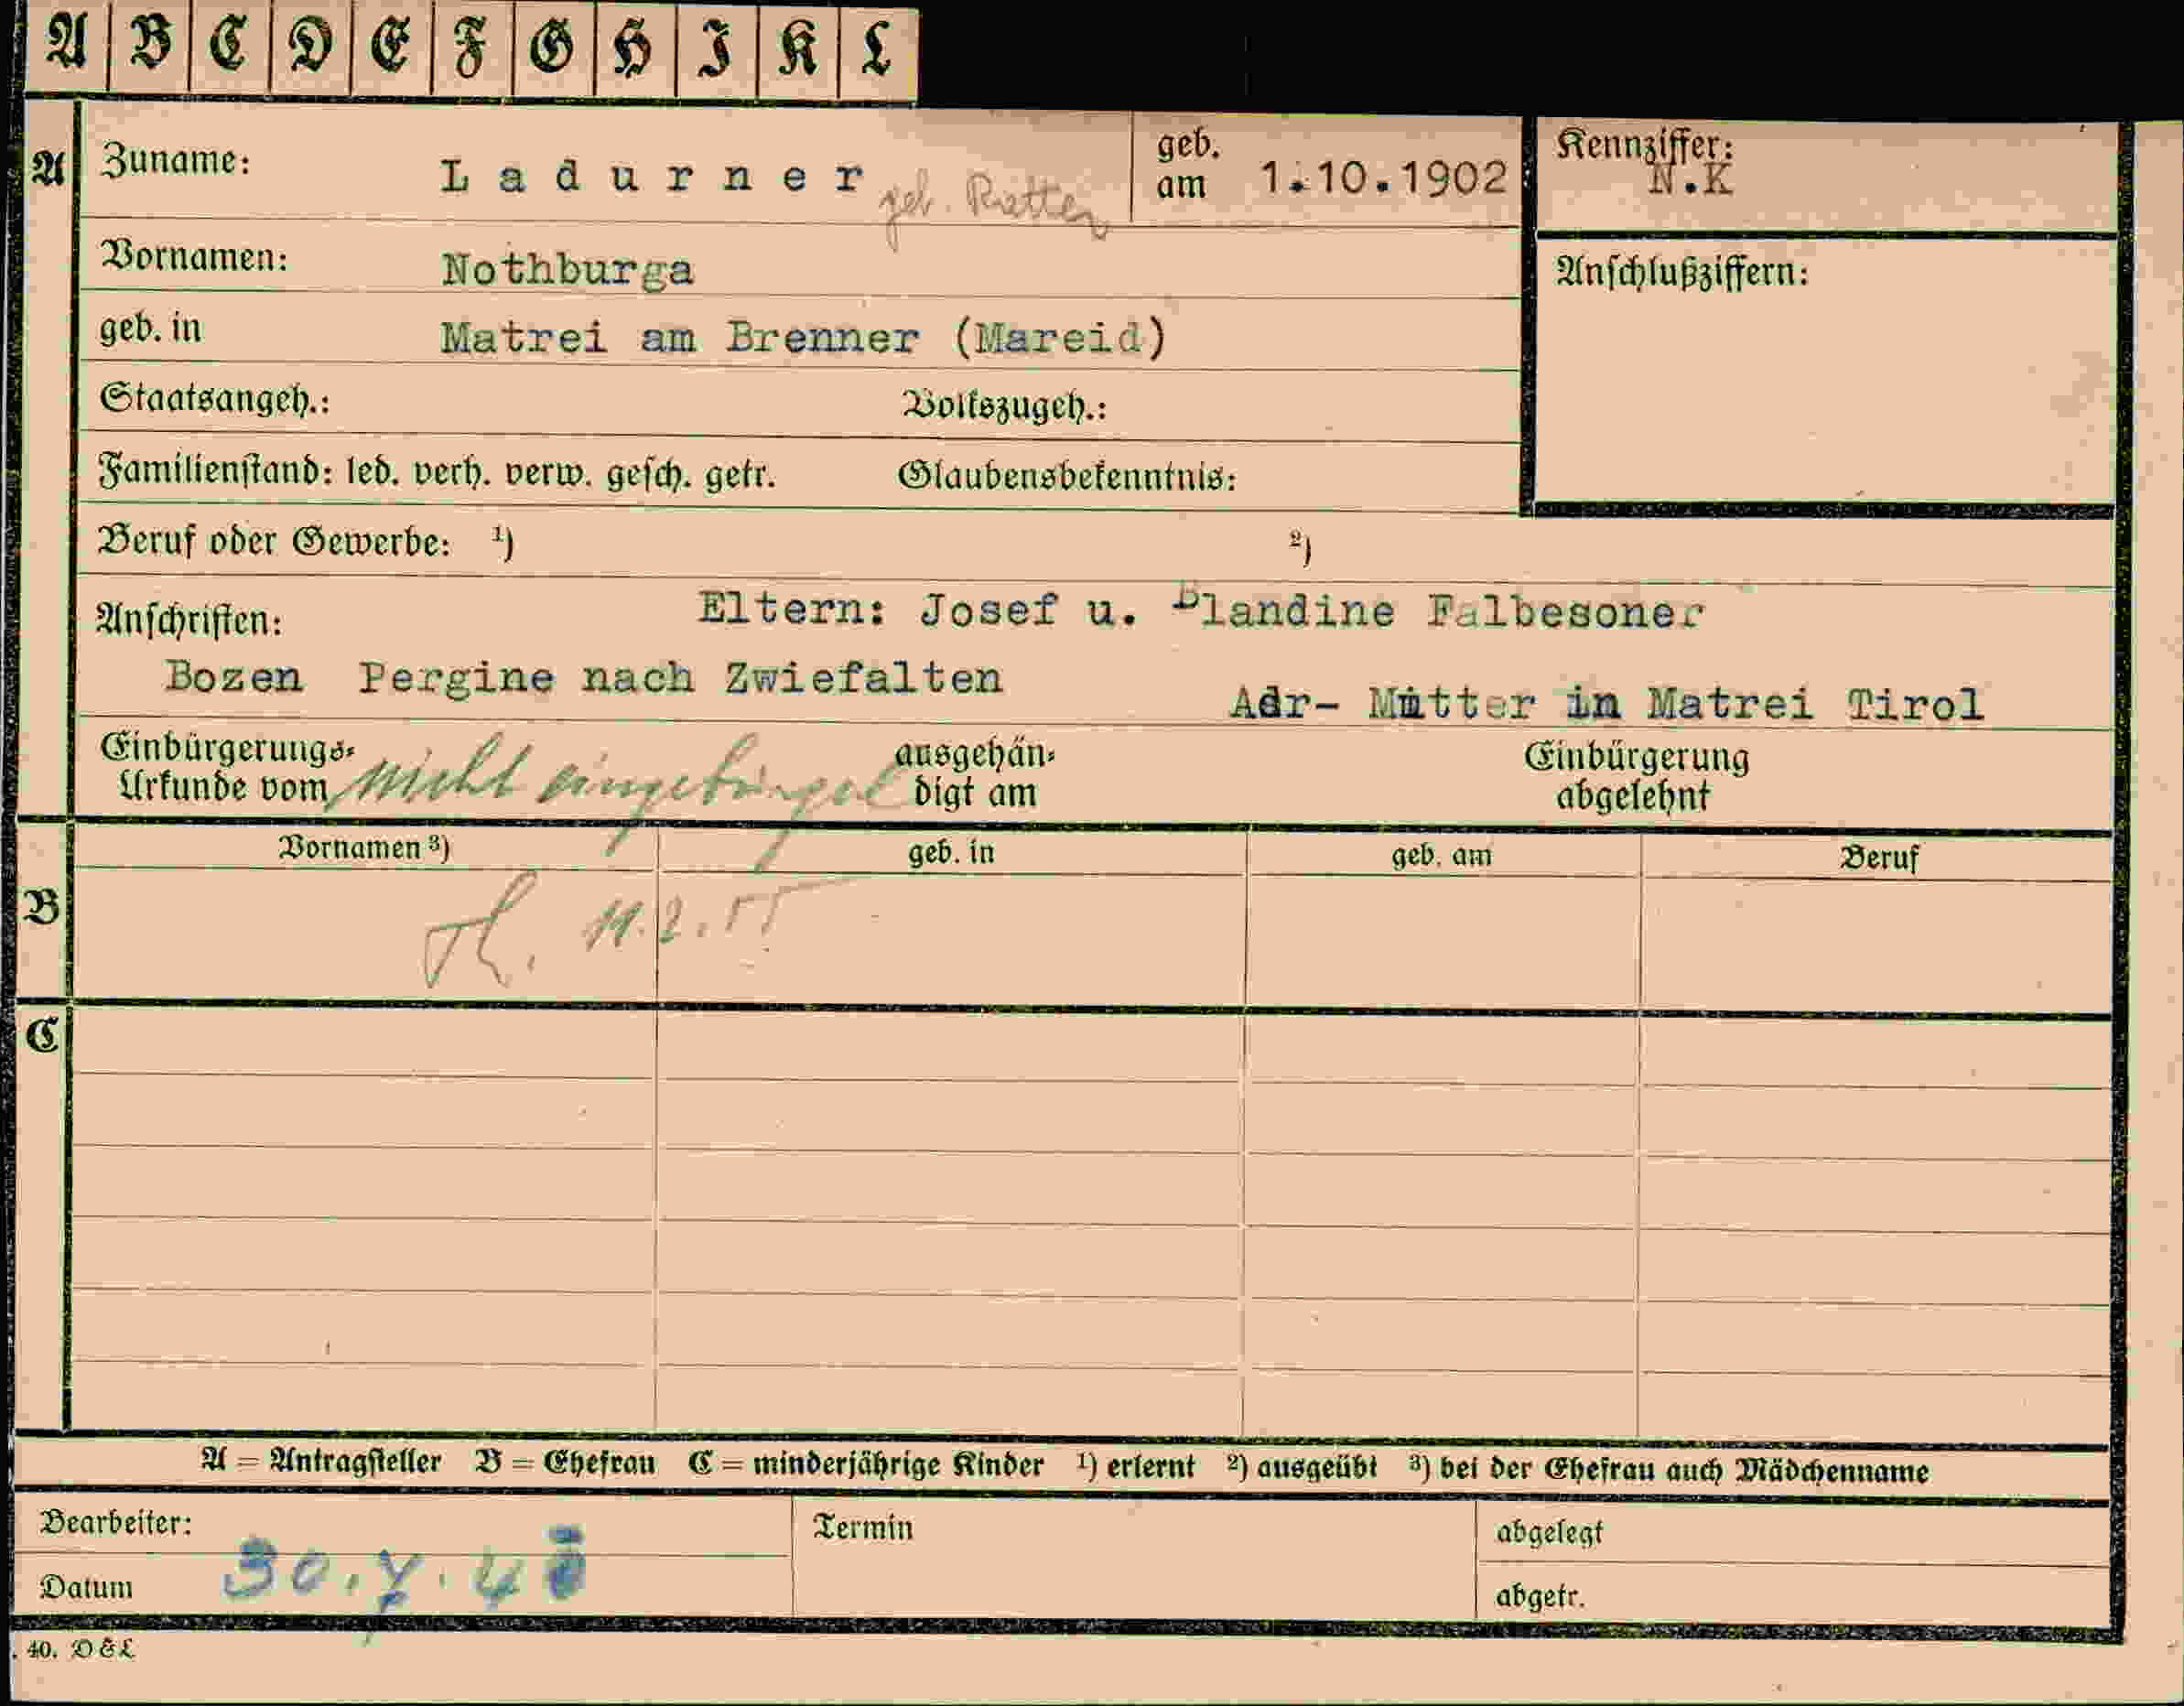 A B C D E F G H I K L
A
Zuname: Ladurner geb.
geb. am 1.10.1902
Kennziffer: N.K
Vornamen: Nothburga
Anschlußziffern:
geb. in Matrei am Brenner (Mareid)
Staatsangeh.: Volkszugeh.:
Familienstand: led. verh. verw. gesch. getr. Glaubensbekenntnis:
Beruf oder Gewerbe: 1) 2)
Anschriften: Eltern: Josef u. Blandine Falbesoner
Bozen Pergine nach Zwiefalten Adr- Mutter in Matrei Tirol
Einbürgerungs-
Urkunde vom nicht
ausgehän-
digt am
Einbürgerung
abgelehnt
Vornamen 3) geb. in geb. am Beruf
B
11.2.55
C
A = Antragsteller B = Ehefrau C = minderjährige Kinder 1) erlernt 2) ausgeübt 3) bei der Ehefrau auch Mädchenname
Bearbeiter: Termin abgelegt
Datum 30.7. abgetr.
40. D & L